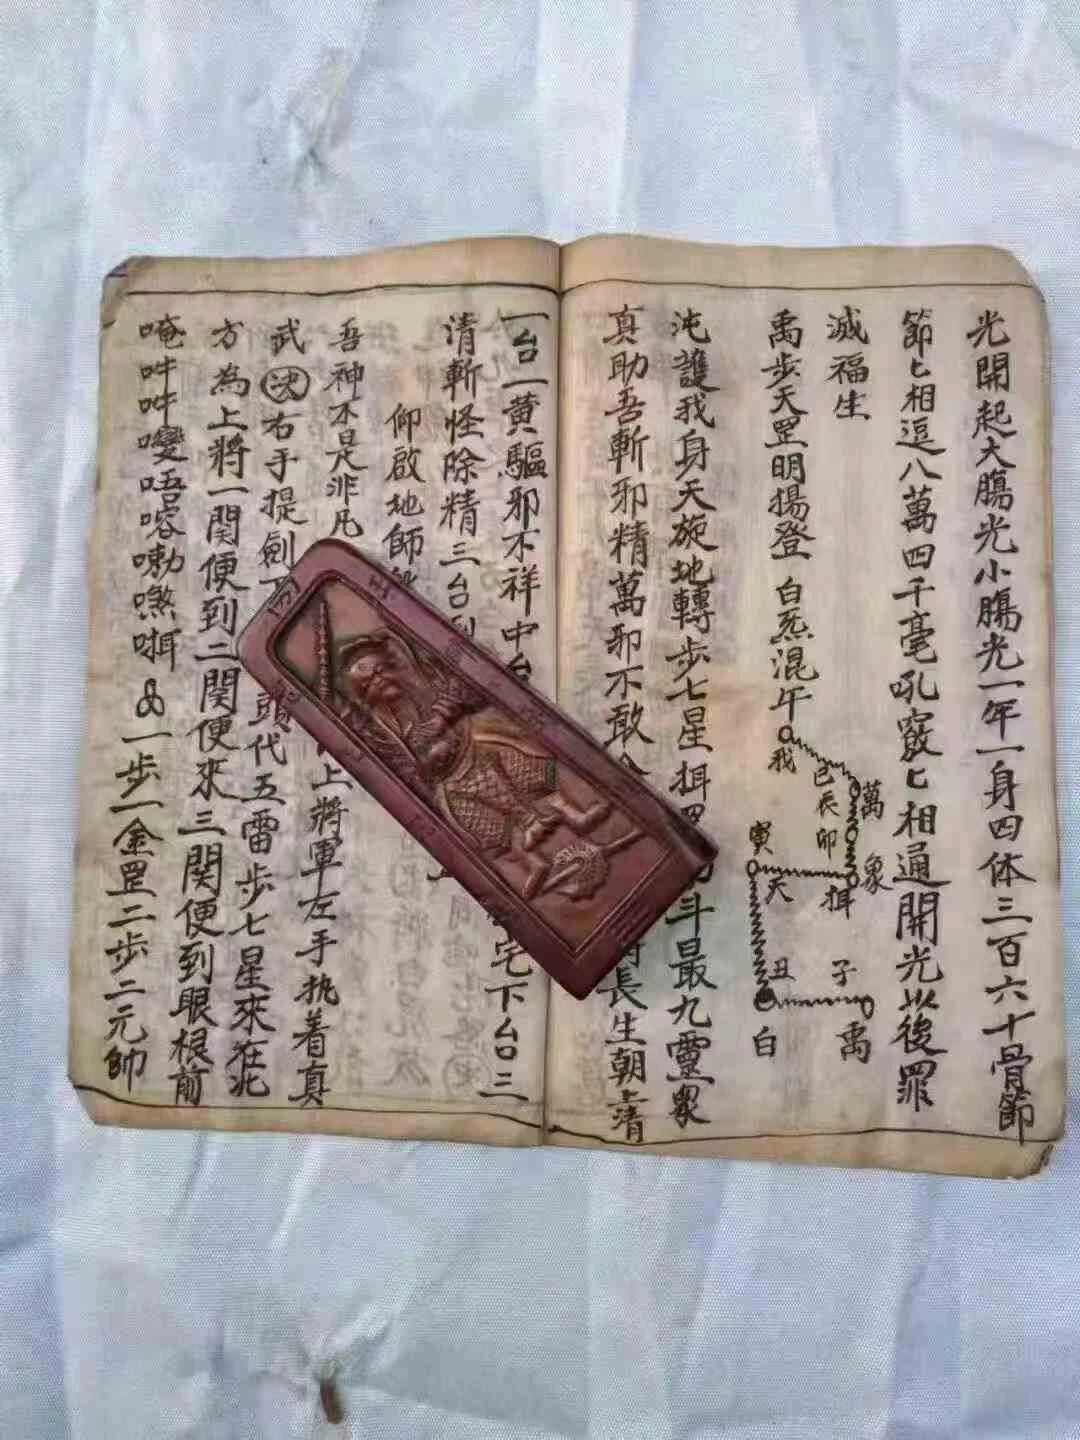 光開起大腸光小腸光一年一身四体三百六十骨節
節匕相逗八萬四千毫吼竅匕相通開光以後罪
滅福生
禹步天罡明揚登
白炁混午
我
巳
辰
卯
萬
象
寅
天
挕
丑
子
白
禹
沌護我身天旋地轉步七星挕罡
斗最九靈眾
真助吾斬邪精萬邪不敢
長生朝上清
一台一黄驅邪不祥中台
宅下台三
清斬怪除精三台到
仰啟地師
吾神不是非凡
上將軍左手执着真
武决右手提劍
頭代五雷步七星來在北
方為上將一関便到二関便來三関便到眼根前
唵吽吽
唔㗐嘞
一步一金罡二步二元帥